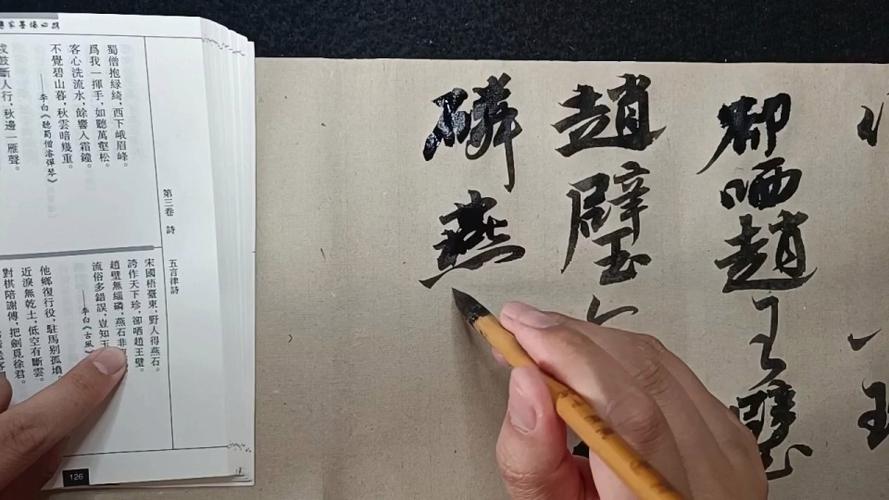 第三卷 詩
五言律詩
蜀僧抱綠綺，西下峨眉峰。
爲我一揮手，如聽萬壑松。
客心洗流水，餘響入霜鐘。
不覺碧山暮，秋雲暗幾重。
——李白《聽蜀僧濬彈琴》
鼓斷人行，秋邊一雁聲。
宋國梧臺東，野人得燕石。
誇作天下珍，卻哂趙王璧。
趙璧無緇磷，燕石非
流俗多錯誤，豈知玉
——李白《古風》
他鄉復行役，駐馬別孤墳。
近淚無乾土，低空有斷雲。
對棋陪謝傅，把劍覓徐君。
126
卻哂趙王璧
趙璧
磷燕